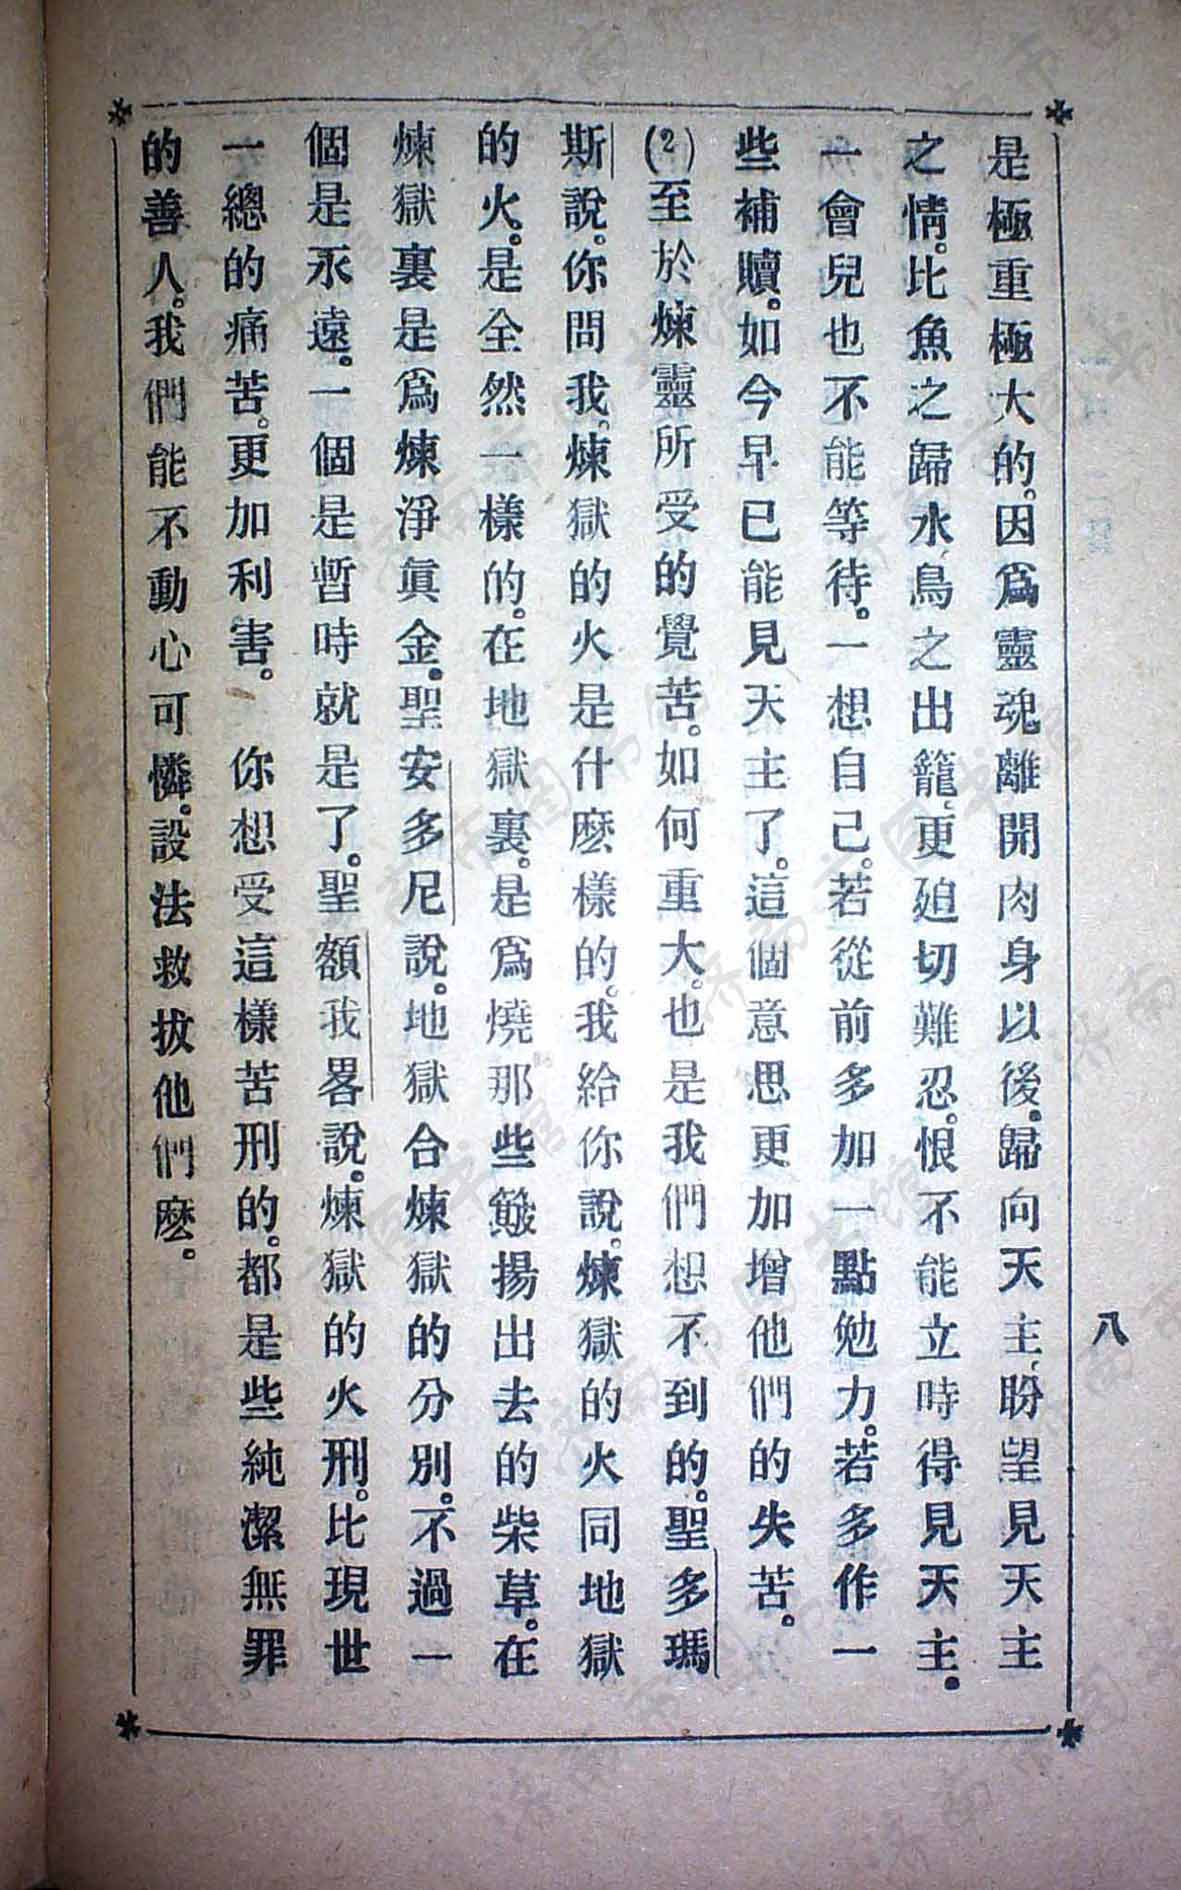 八
是極重極大的。因爲靈魂離開肉身以後。歸向天主、盼望見天主
之情。比魚之歸水、鳥之出籠、更廹切難忍。恨不能立時得見天主。
一會兒也不能等待。一想自己。若從前多加一點勉力。若多作一
些補贖。如今早已能見天主了。這個意思更加增他們的失苦。
(2)至於煉靈所受的覺苦。如何重大。也是我們想不到的。聖多瑪
斯說。你問我。煉獄的火是什麽樣的。我給你說。煉獄的火同地獄
的火。是全然一樣的。在地獄裏。是爲燒那些簸揚出去的柴草。在
煉獄裏是爲煉淨眞金。聖安多尼說。地獄合煉獄的分別。不過一
個是永遠。一個是暫時就是了。聖額我畧說。煉獄的火刑。比現世
一總的痛苦。更加利害。 你想受這樣苦刑的。都是些純潔無罪
的善人。我們能不動心可憐。設法救拔他們麽。
济南市图书馆